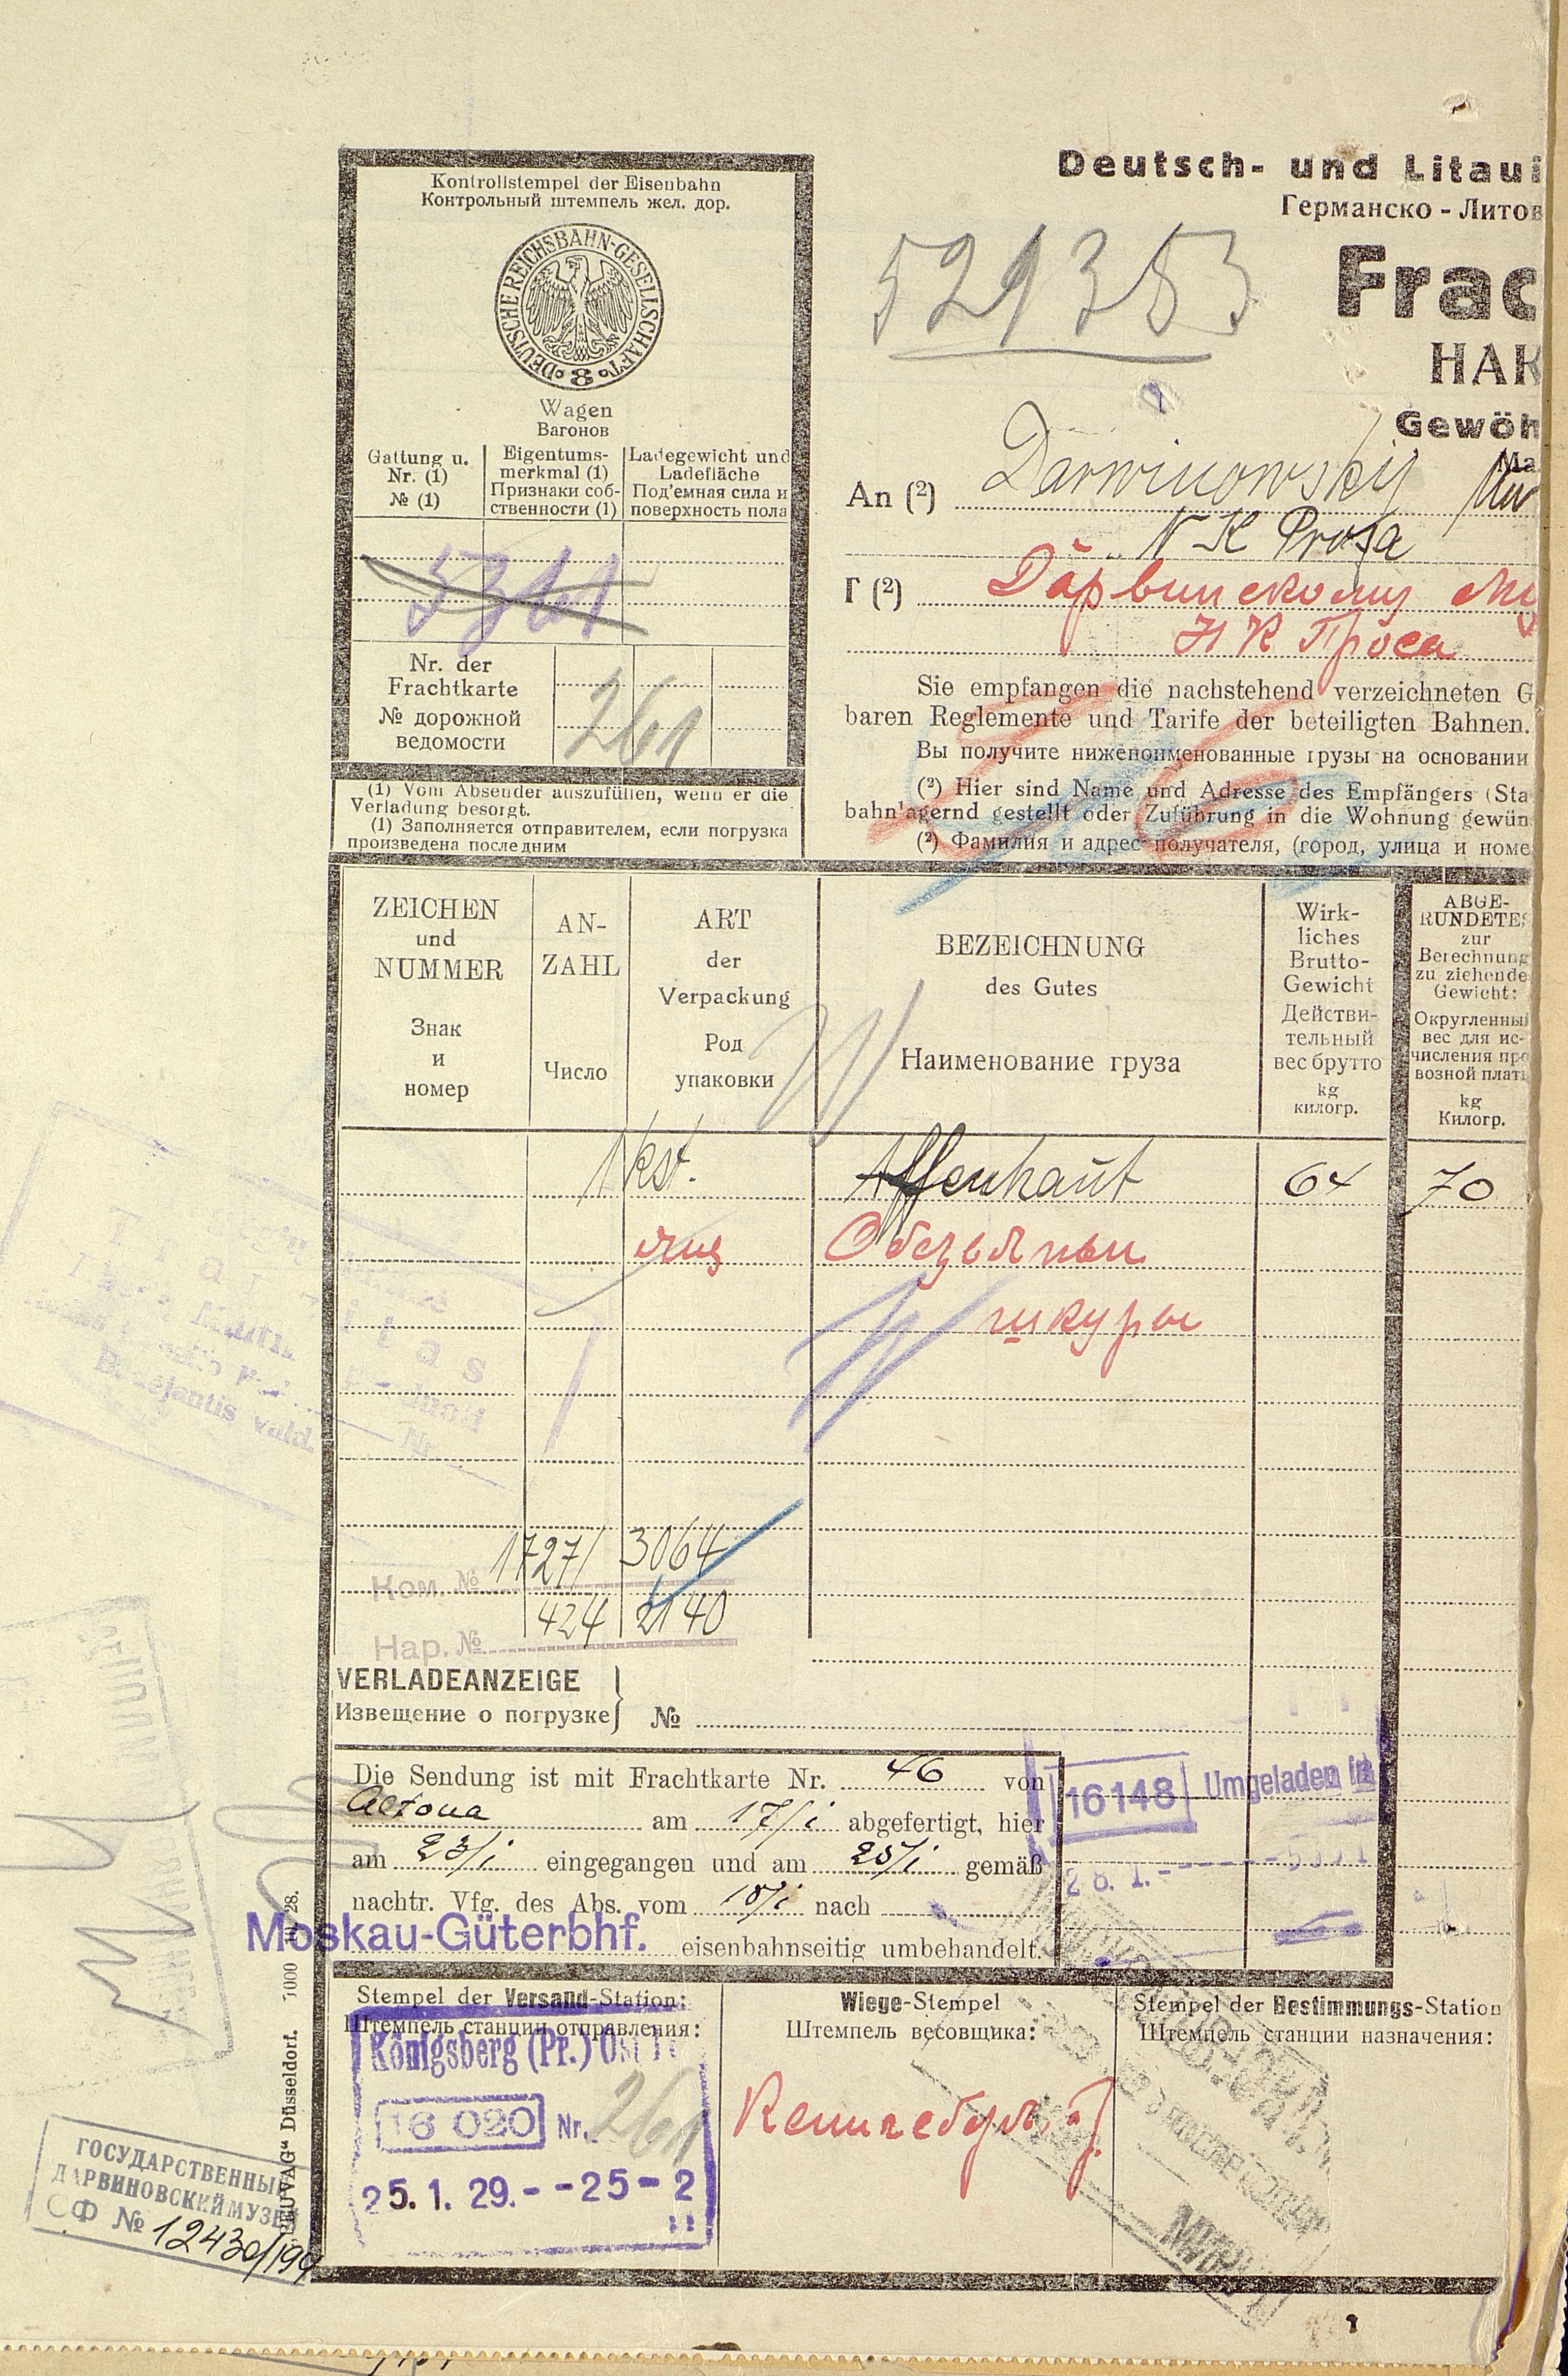 Kontrollstempel der Eisenbahn
Контрольный штемпель жел. дор.
DEUTSCHE REICHSBAHN-GESELLSCHAFT
8
Wagen
Вагонов
Gattung u.
Nr. (1)
№ (1)
Eigentums-
merkmal (1)
Признаки соб-
ственности (1)
Ladegewicht und
Ladefläche
Под'емная сила и
поверхность пола
5361
Nr. der
Frachtkarte
№ дорожной
ведомости
261
(1) Vom Absender auszufüllen, wenn er die
Verladung besorgt.
(1) Заполняется отправителем, если погрузка
произведена последним
Deutsch- und Litaui
Германско - Литов
529383
Frac
НАК
Gewöh
Ma
An (²) Darwinowsky Mu
N K Prosa
Г (²) Дарвинскому Му
Н К Проса
Sie empfangen die nachstehend verzeichneten G
baren Reglemente und Tarife der beteiligten Bahnen.
Вы получите нижепоименованные грузы на основании
(²) Hier sind Name und Adresse des Empfängers (Sta
bahnlagernd gestellt oder Zuführung in die Wohnung gewün
(²) Фамилия и адрес получателя, (город, улица и номе
ZEICHEN
und
NUMMER
Знак
и
номер
AN-
ZAHL
Число
ART
der
Verpackung
Род
упаковки
BEZEICHNUNG
des Gutes
Наименование груза
Wirk-
liches
Brutto-
Gewicht
Действи-
тельный
вес брутто
kg
килогр.
ABGE-
RUNDETES
zur
Berechnung
zu ziehende
Gewicht:
Округленный
вес для ис-
числения про
возной платы
kg
Килогр.
1 Kst. Affenhaut 64 70
ящ Обезьяньи
шкуры
Ком. № 17271 3064
Нар. № 424 2140
VERLADEANZEIGE
Извещение о погрузке } №
Die Sendung ist mit Frachtkarte Nr. 46 von
Altona am 17/i abgefertigt, hier
am 23/i eingegangen und am 25/i gemäß
nachtr. Vfg. des Abs. vom 18/i nach
Moskau-Güterbhf. eisenbahnseitig umbehandelt.
16148 Umgeladen in
28. 1.
Stempel der Versand-Station:
Штемпель станции отправления:
Königsberg (Pr.) Ost
16 020 Nr. 261
25. 1. 29. - - 25 - 2
Wiege-Stempel
Штемпель весовщика:
Stempel der Bestimmungs-Station
Штемпель станции назначения:
"DEUVAG" Düsseldorf.
ГОСУДАРСТВЕННЫЙ
ДАРВИНОВСКИЙ МУЗЕЙ
ОФ № 12430/199